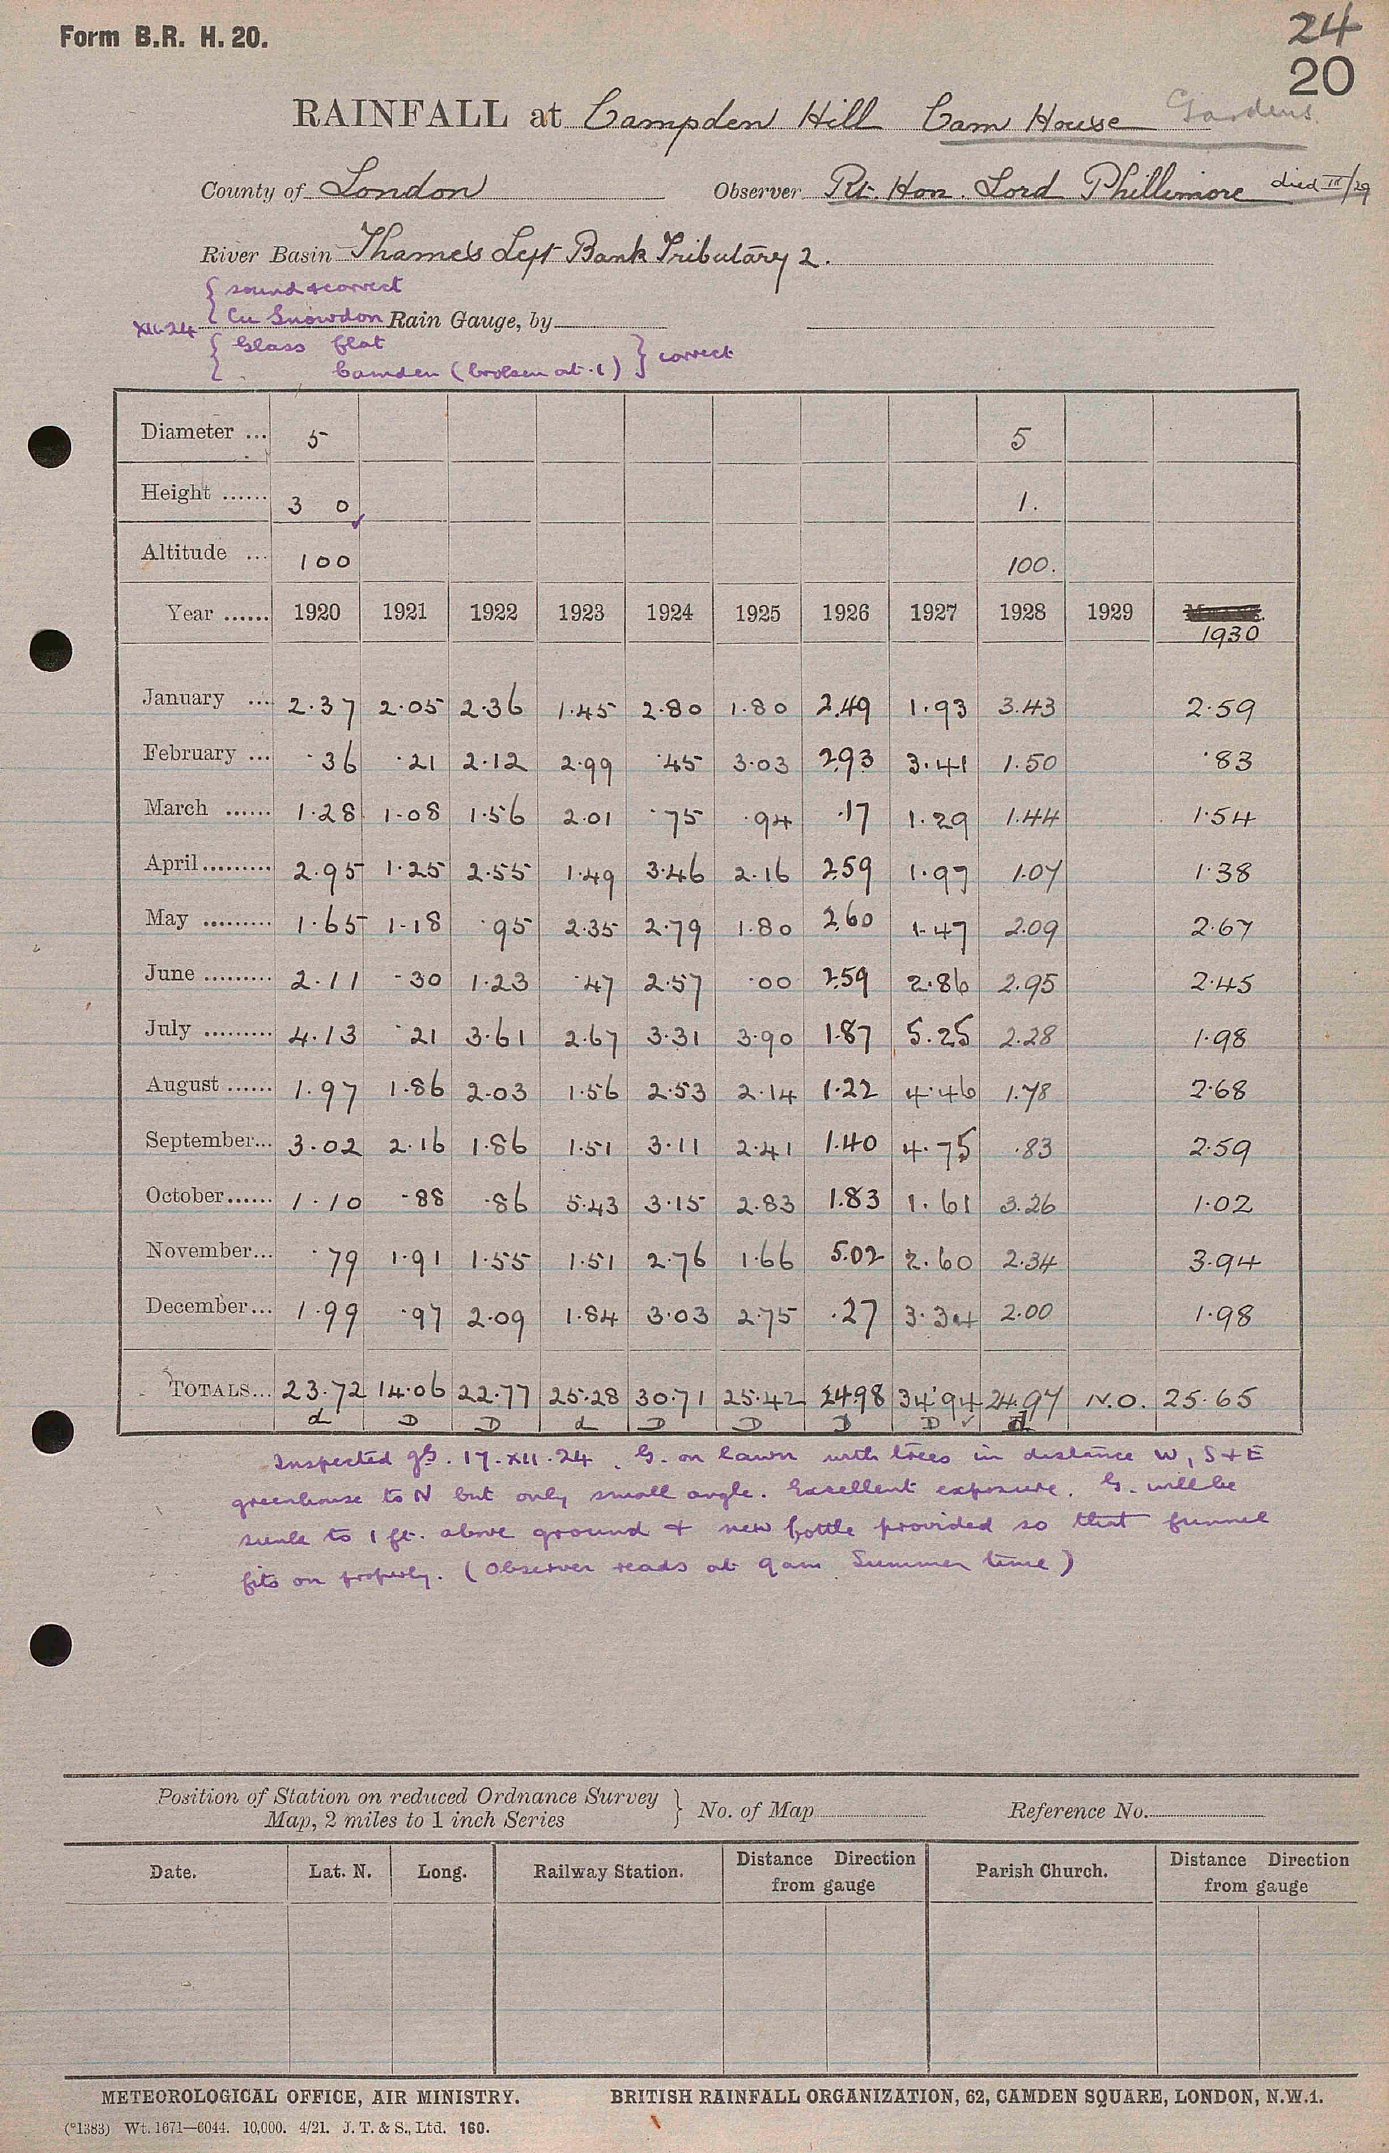 Form B.R. H. 20.
24
20
RAINFALL at Campden Hill Cam House Gardens
County of London Observer Rt. Hon. Lord Phillimore died III/29
River Basin Thames Left Bank Tributary 2.
{ sound & correct
XII.24 { Cu Snowdon Rain Gauge, by
{ Glass flat
{ Camden (broken at .1) } correct
Diameter ... 5 5
Height ...... 3 0 1.
Altitude ... 100 100.
Year ...... 1920 1921 1922 1923 1924 1925 1926 1927 1928 1929 1930
January ... 2.37 2.05 2.36 1.45 2.80 1.80 2.49 1.93 3.43 2.59
February ... .36 .21 2.12 2.99 .45 3.03 2.93 3.41 1.50 .83
March ...... 1.28 1.08 1.56 2.01 .75 .94 .17 1.29 1.44 1.54
April ......... 2.95 1.25 2.55 1.49 3.46 2.16 2.59 1.97 1.07 1.38
May ......... 1.65 1.18 .95 2.35 2.79 1.80 2.60 1.47 2.09 2.67
June ......... 2.11 .30 1.23 .47 2.57 .00 2.59 2.86 2.95 2.45
July ......... 4.13 .21 3.61 2.67 3.31 3.90 1.87 5.25 2.28 1.98
August ...... 1.97 1.86 2.03 1.56 2.53 2.14 1.22 4.46 1.78 2.68
September... 3.02 2.16 1.86 1.51 3.11 2.41 1.40 4.75 .83 2.59
October...... 1.10 .88 .86 5.43 3.15 2.83 1.83 1.61 3.26 1.02
November... .79 1.91 1.55 1.51 2.76 1.66 5.02 2.60 2.34 3.94
December... 1.99 .97 2.09 1.84 3.03 2.75 .27 3.34 2.00 1.98
TOTALS... 23.72 14.06 22.77 25.28 30.71 25.42 24.98 34.94 24.97 N.O. 25.65
d D D d D D D D ✓ d
Inspected 17.XII.24. G. on lawn with trees in distance W, S + E
greenhouse to N but only small angle. Excellent exposure. G. will be
sunk to 1 ft. above ground + new bottle provided so that funnel
fits on properly. (Observer reads at 9am Summer time)
Position of Station on reduced Ordnance Survey
Map, 2 miles to 1 inch Series } No. of Map Reference No.
Date. Lat. N. Long. Railway Station. Distance Direction from gauge Parish Church. Distance Direction from gauge
METEOROLOGICAL OFFICE, AIR MINISTRY. BRITISH RAINFALL ORGANIZATION, 62, CAMDEN SQUARE, LONDON, N.W.1.
(*1383) Wt. 1671—6044. 10,000. 4/21. J. T. & S., Ltd. 160.